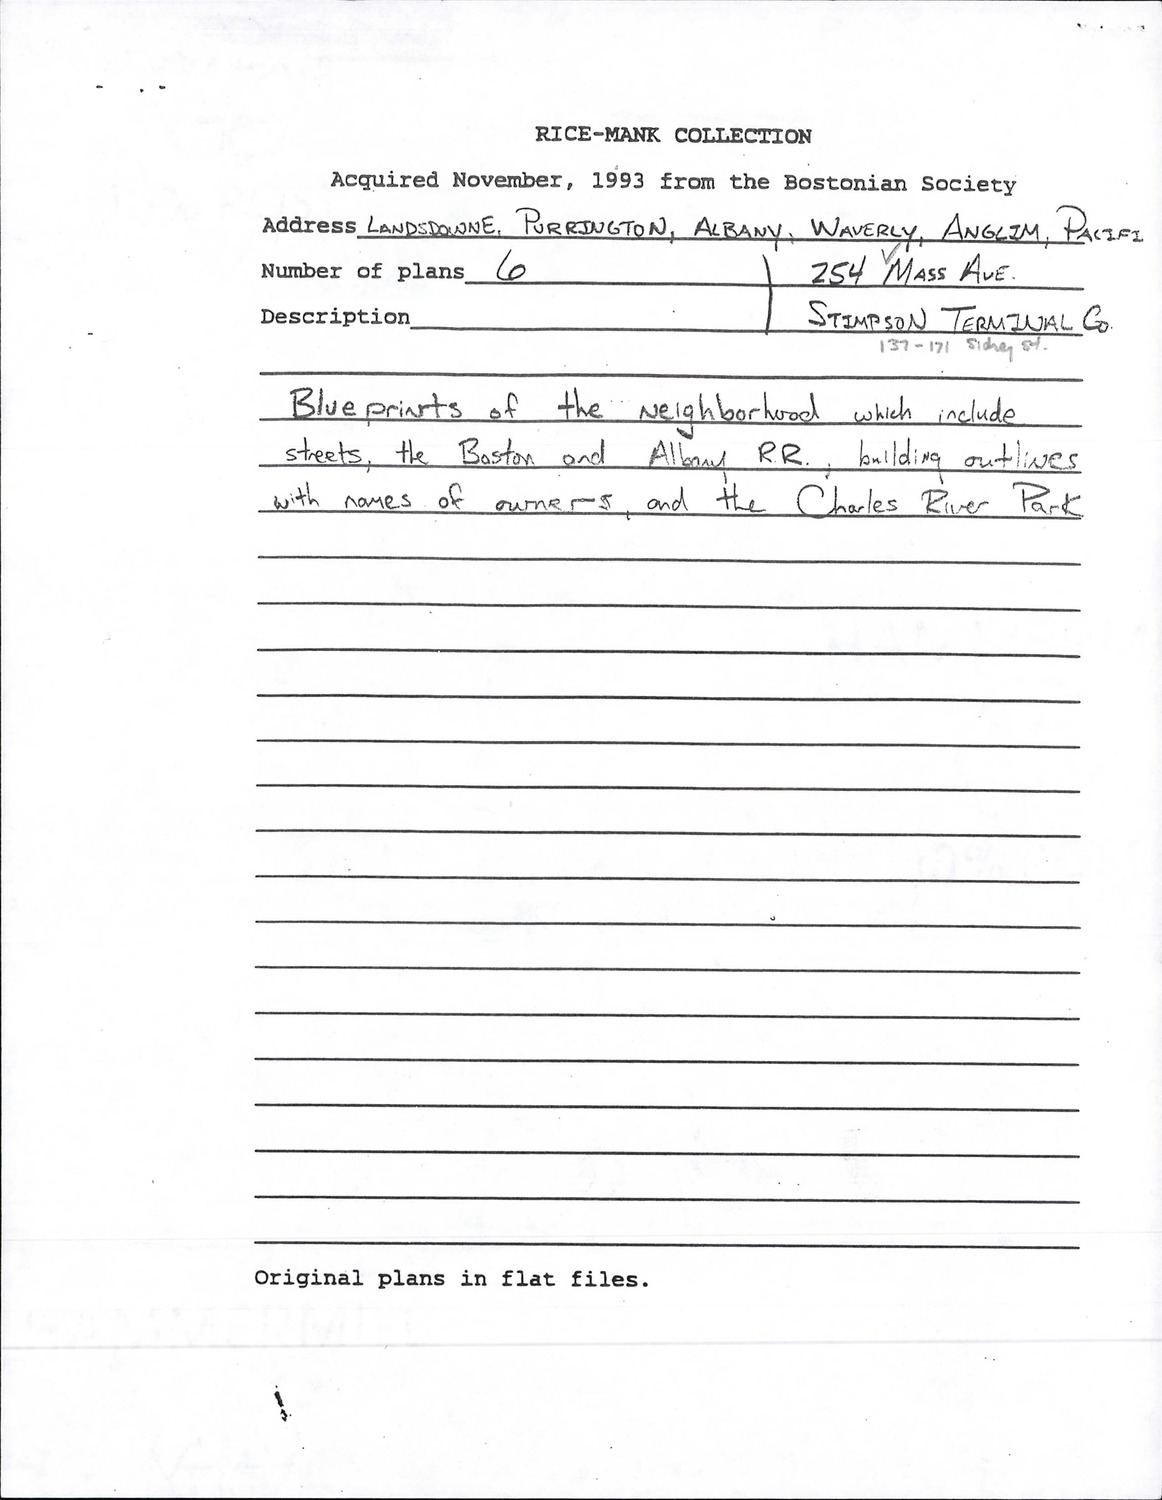 RICE-MANK COLLECTION
Acquired November, 1993 from the Bostonian Society
Address LANDSDOWNE, PURRINGTON, ALBANY, WAVERLY, ANGLIM, PACIFI
Number of plans 6 254 MASS AVE.
Description STIMPSON TERMINAL Co.
137-171 Sidney St.
Blueprints of the neighborhood which include
streets, the Boston and Albany R.R., building outlines
with names of owners, and the Charles River Park
Original plans in flat files.